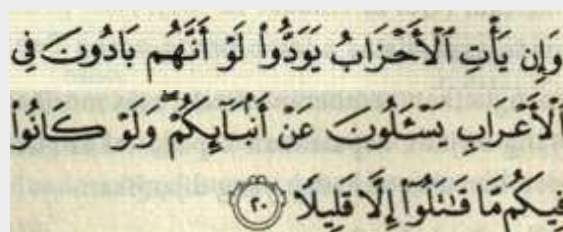 وَإِن يَأْتِ ٱلْأَحْزَابُ يَوَدُّوا۟ لَوْ أَنَّهُم بَادُونَ فِى
ٱلْأَعْرَابِ يَسْـَٔلُونَ عَنْ أَنۢبَآئِكُمْ ۖ وَلَوْ كَانُوا۟
فِيكُم مَّا قَـٰتَلُوٓا۟ إِلَّا قَلِيلًا ٢٠